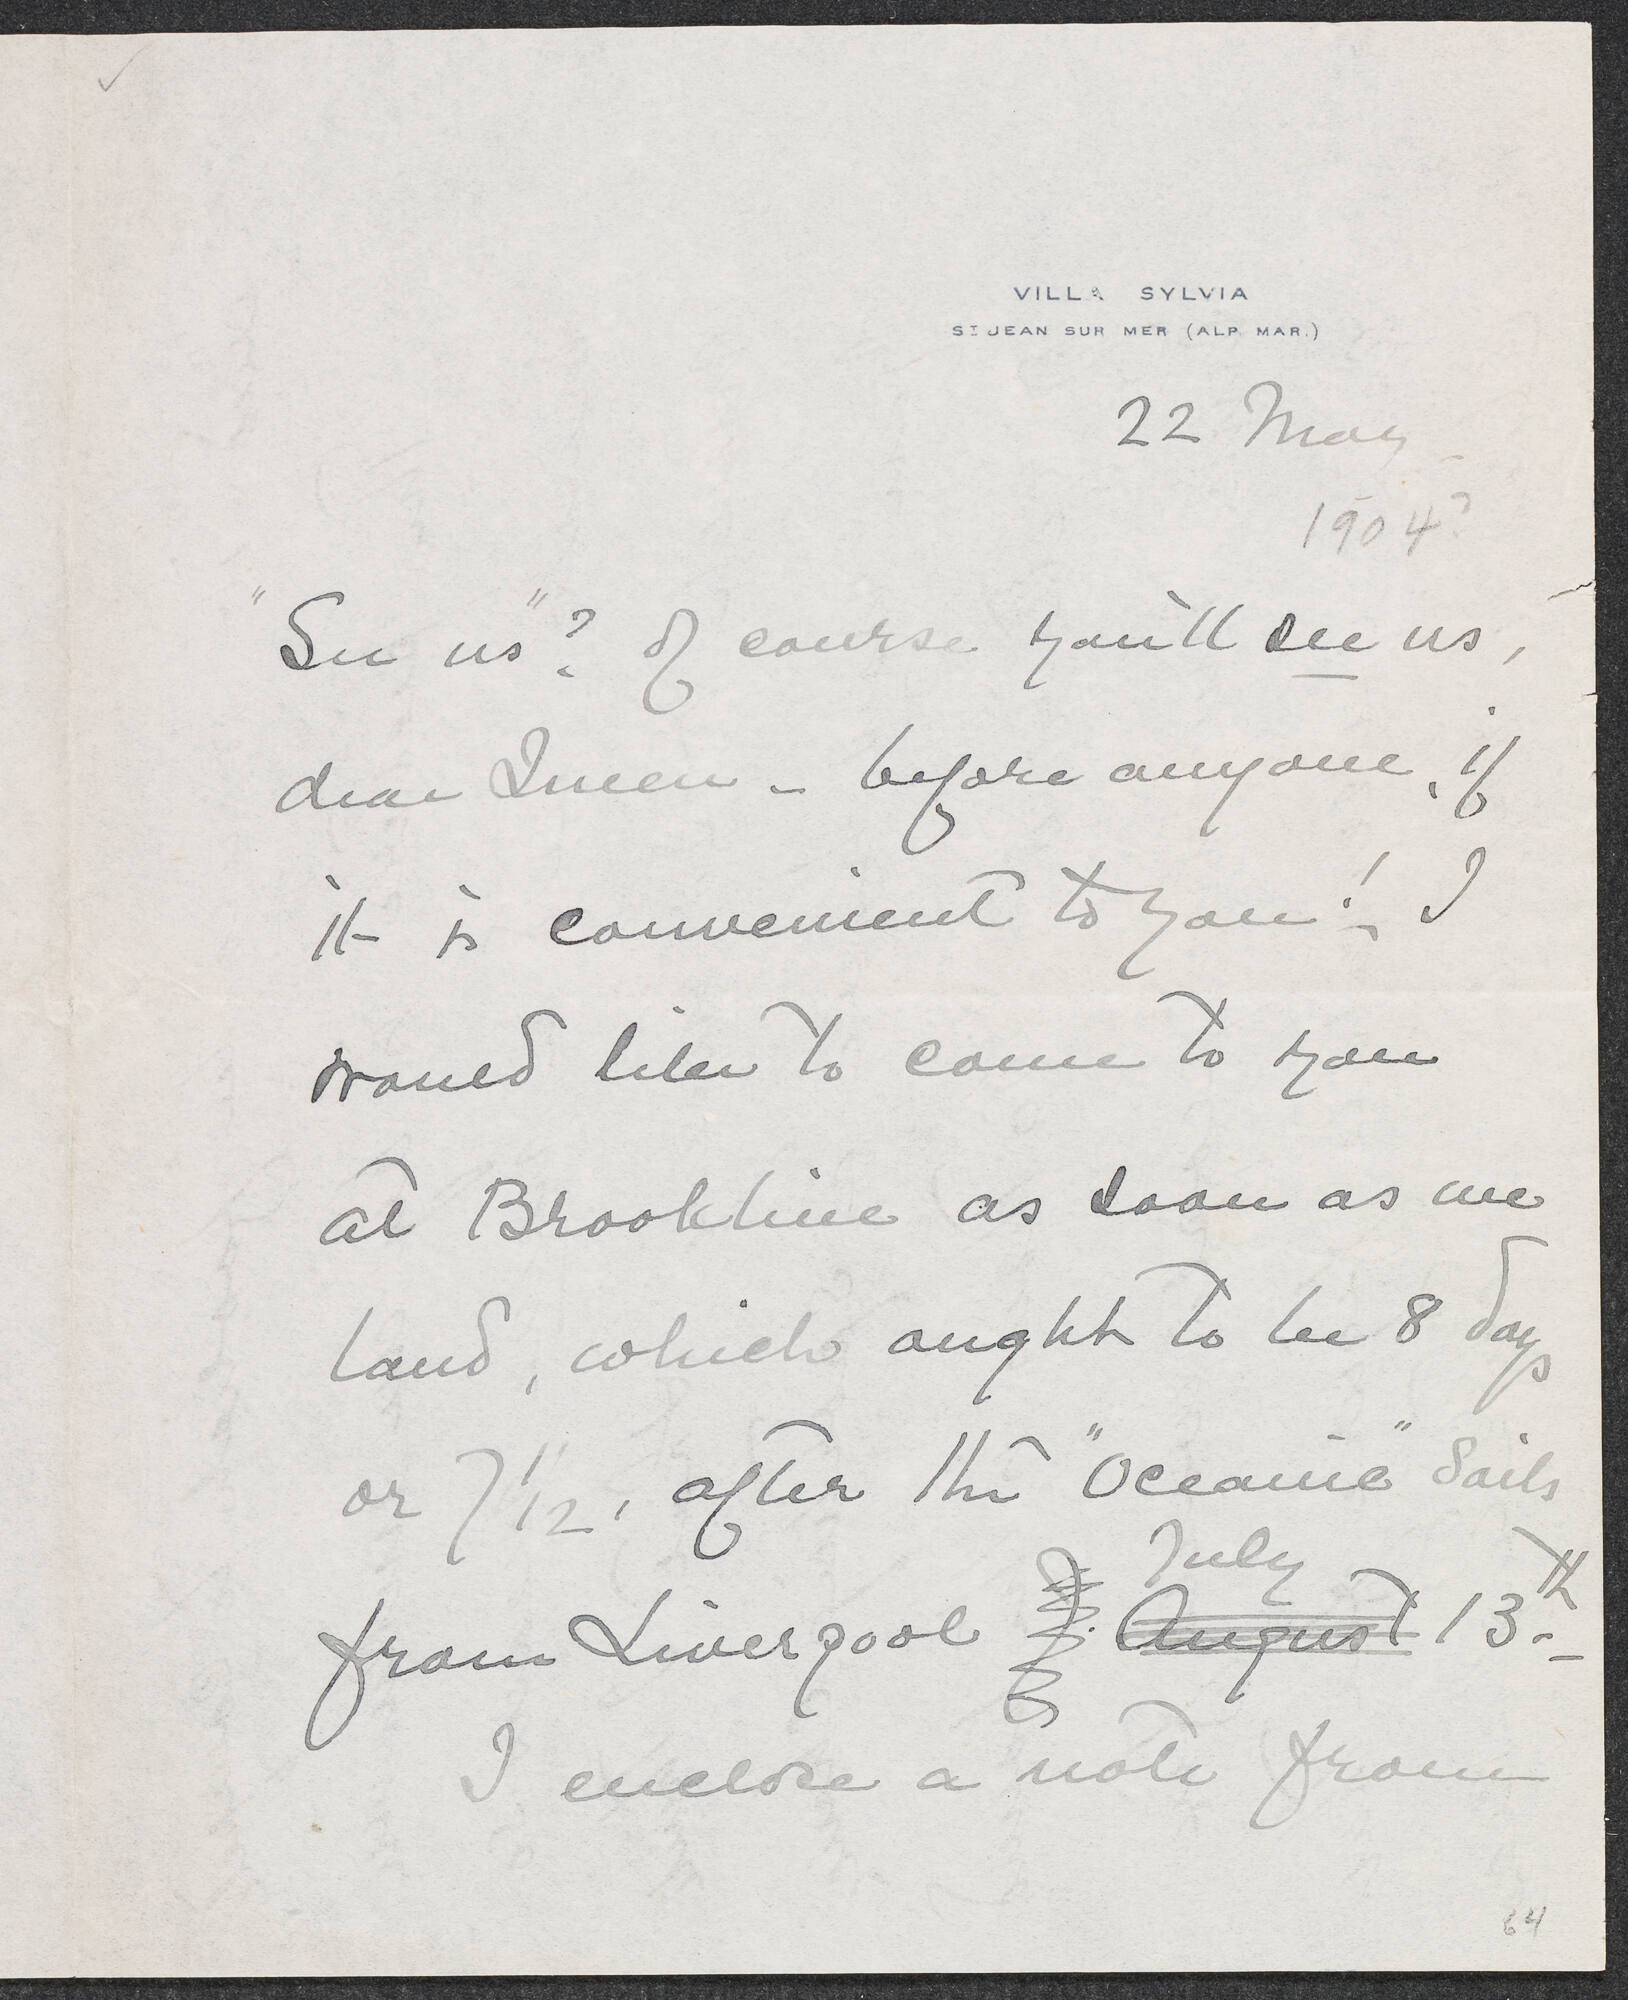 VILLA SYLVIA
ST JEAN SUR MER (ALP. MAR.)
22 May
1904?
"See us"? Of course you'll see us,
dear Queen - before anyone, if
it is convenient to you! - I
would like to come to you
at Brookline as soon as we
land, which ought to be 8 days
or 7 1/2, after the "Oceanic" sails
July
from Liverpool August 13th.
I enclose a note from
64